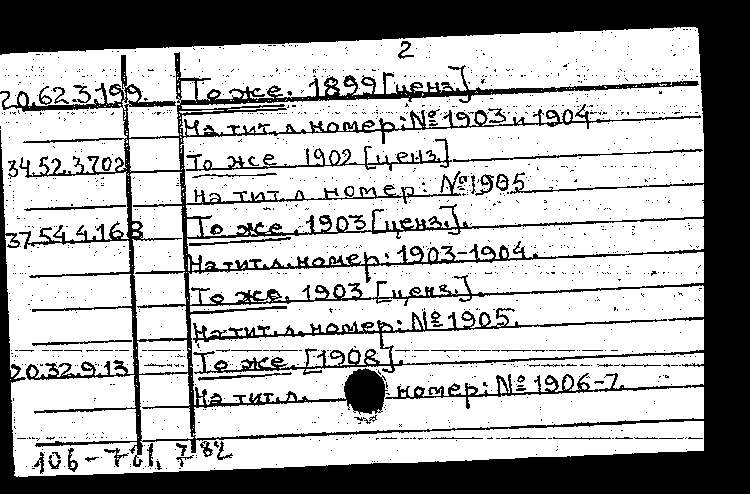 2
20.62.3.199. То же. 1899 [ценз.].
На тит. л. номер: № 1903 и 1904.
34.52.3.702 То же. 1902 [ценз.]
На тит. л. номер: № 1905
37.54.4.168 То же. 1903 [ценз.].
На тит. л. номер: 1903-1904.
То же. 1903 [ценз.].
На тит. л. номер: № 1905.
20.32.9.13 То же. [1908].
На тит. л. номер: № 1906-7.
106-781, 782